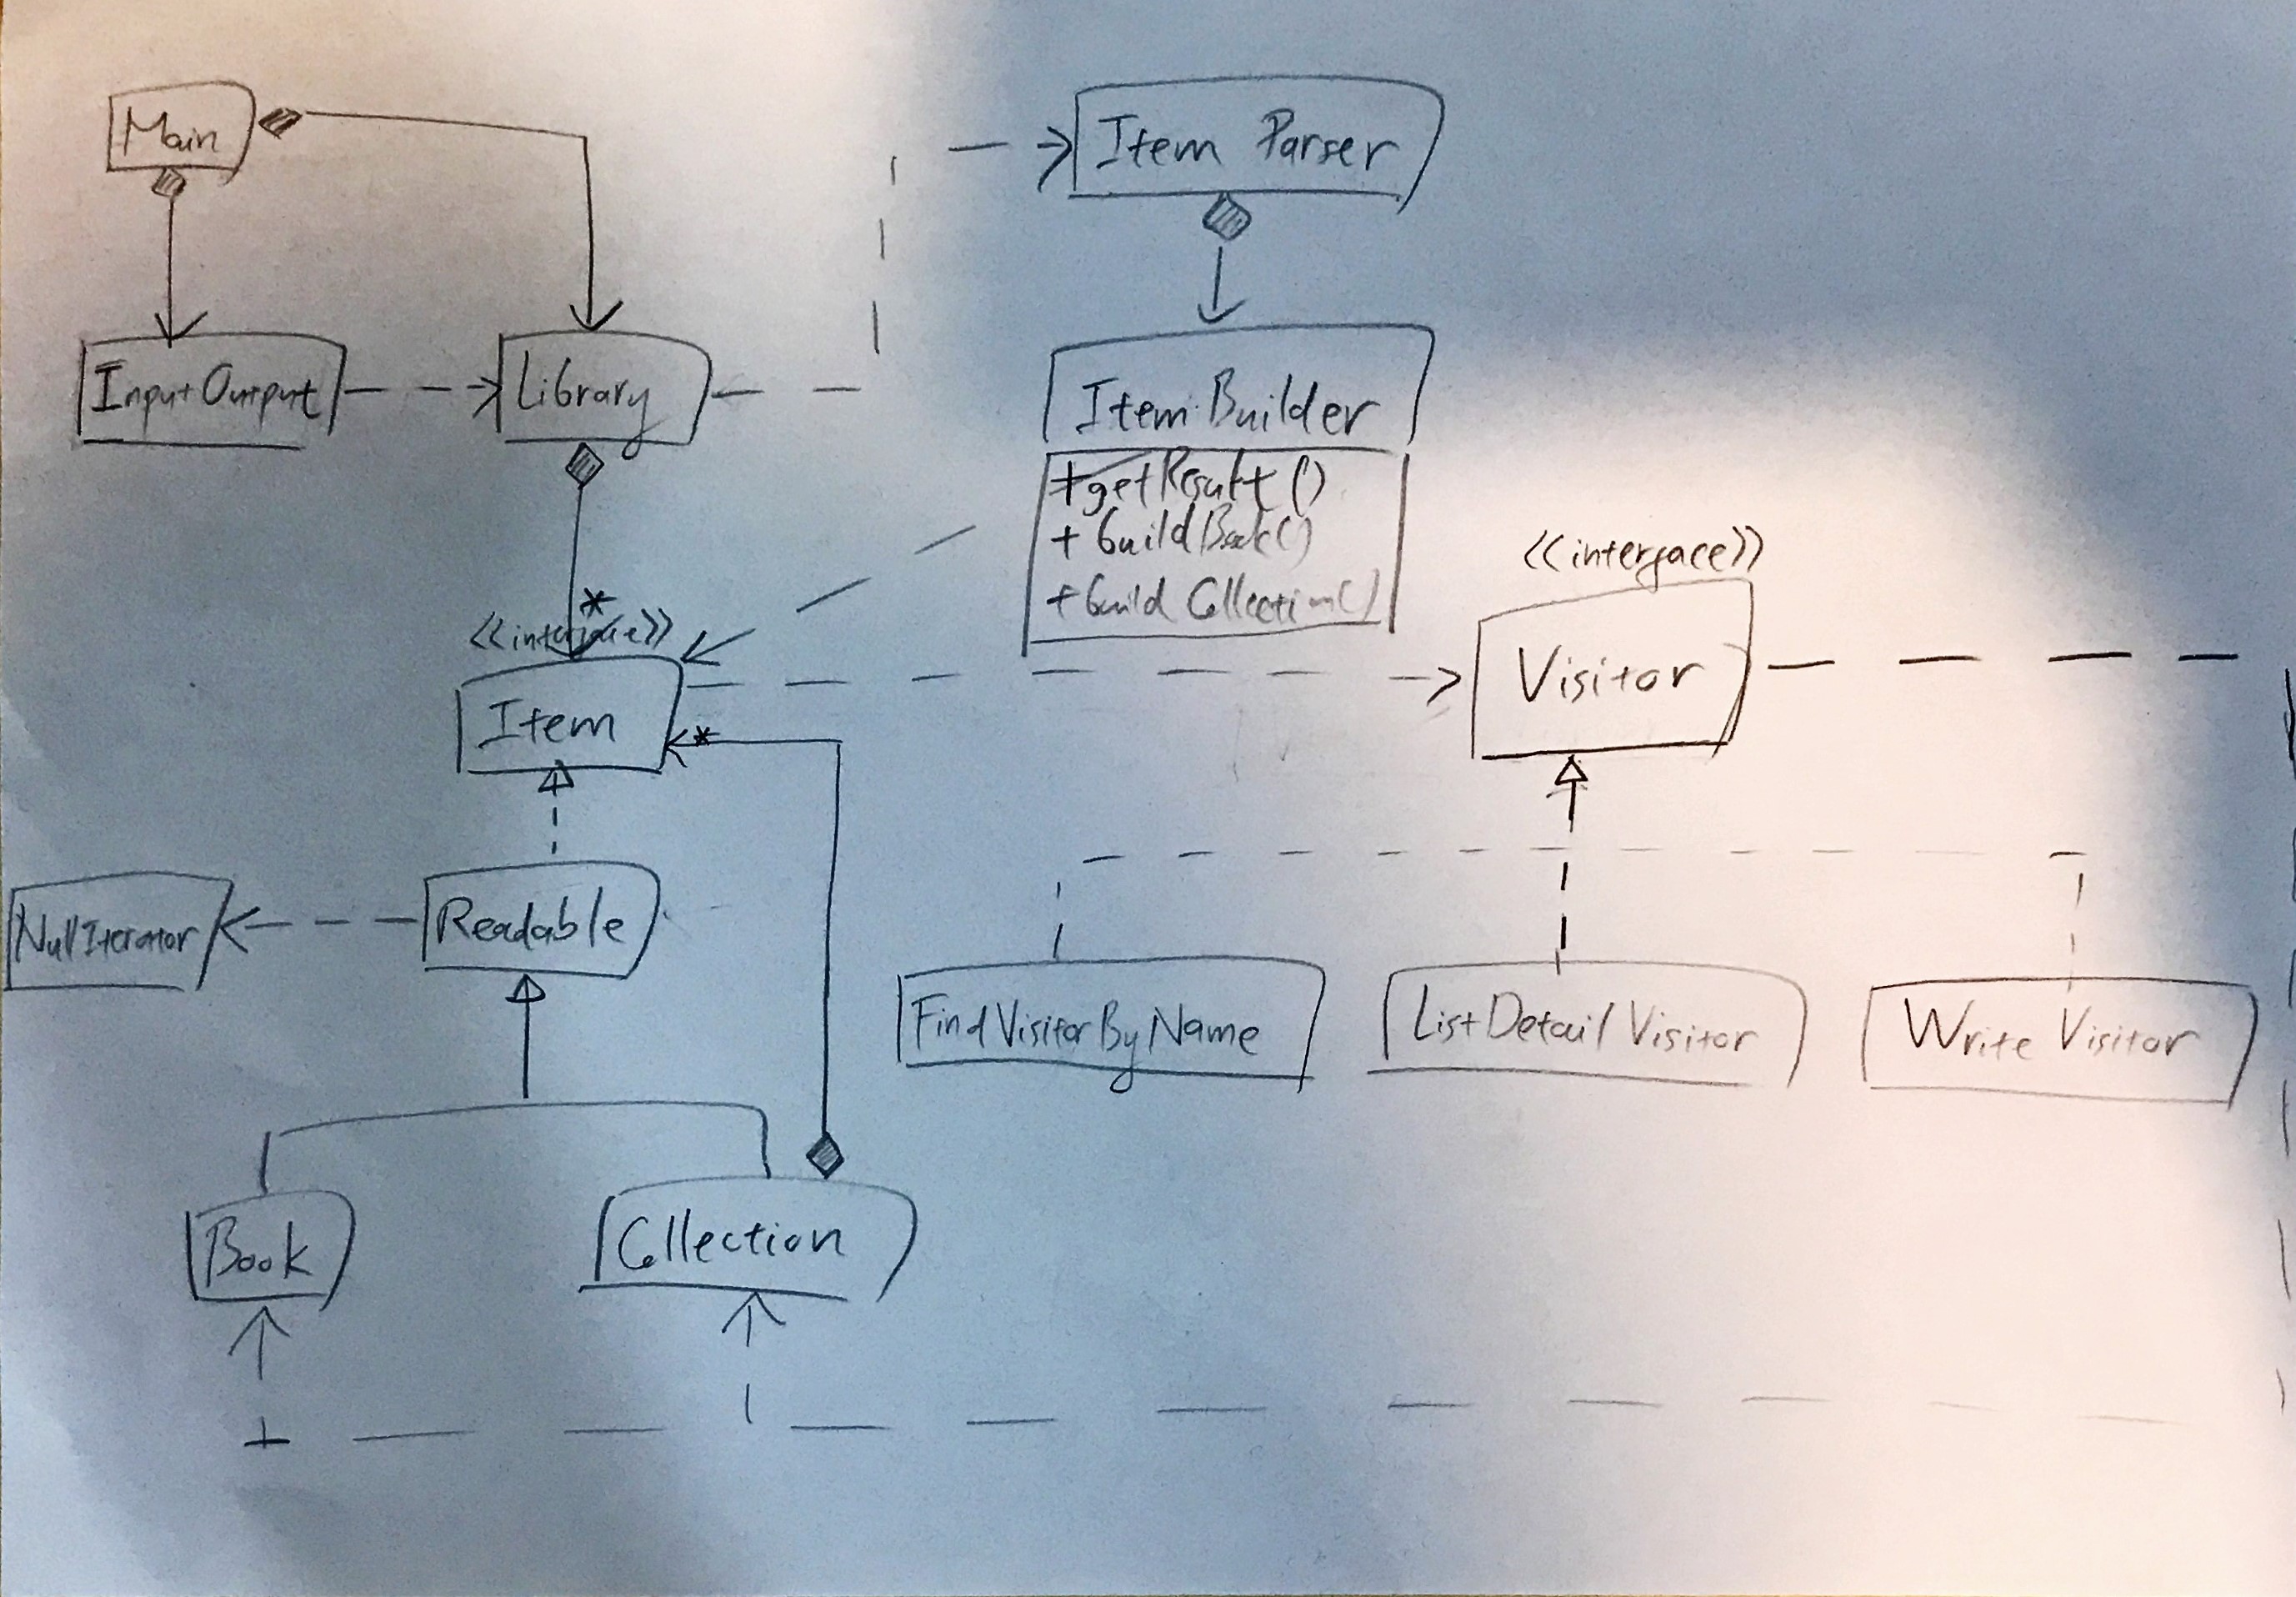 Main
Item Parser
InputOutput
Library
Item Builder
+getResult()
+buildBook()
+build Collection()
<<interface>>
Visitor
*
<<interface>>
Item
*
Readable
NullIterator
FindVisitorByName
ListDetail Visitor
Write Visitor
Book
Collection